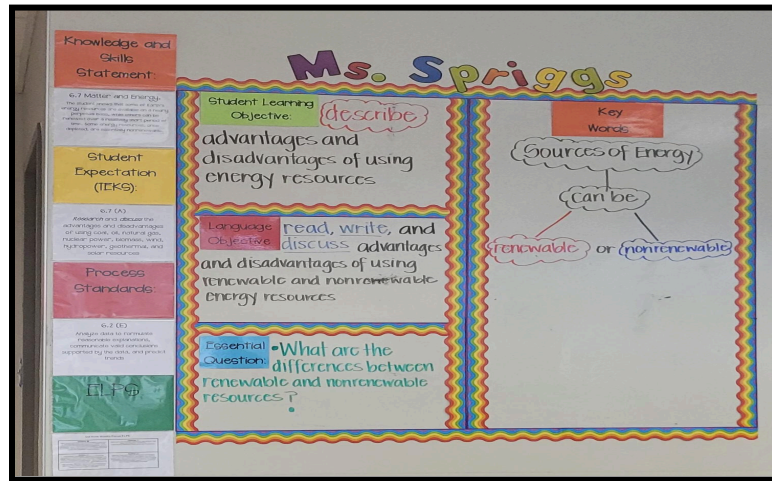 Ms. Spriggs
Knowledge and
Skills
Statement:
6.7 Matter and Energy.
Student
Expectation
(TEKS):
6.7 (A)
Research and discuss the
advantages and disadvantages
of using coal, oil, natural gas,
nuclear power, biomass, wind,
hydropower, geothermal, and
solar resources
Process
Standards:
6.2 (E)
Analyze data to formulate
reasonable explanations,
communicate valid conclusions
supported by the data, and predict
trends
ELPS
Student Learning
Objective:
describe
advantages and
disadvantages of using
energy resources
Language
Objective
read, write, and
discuss advantages
and disadvantages of using
renewable and nonrenewable
energy resources
Essential
Question:
•What are the
differences between
renewable and nonrenewable
resources?
Key
Words
Sources of Energy
can be
renewable or nonrenewable